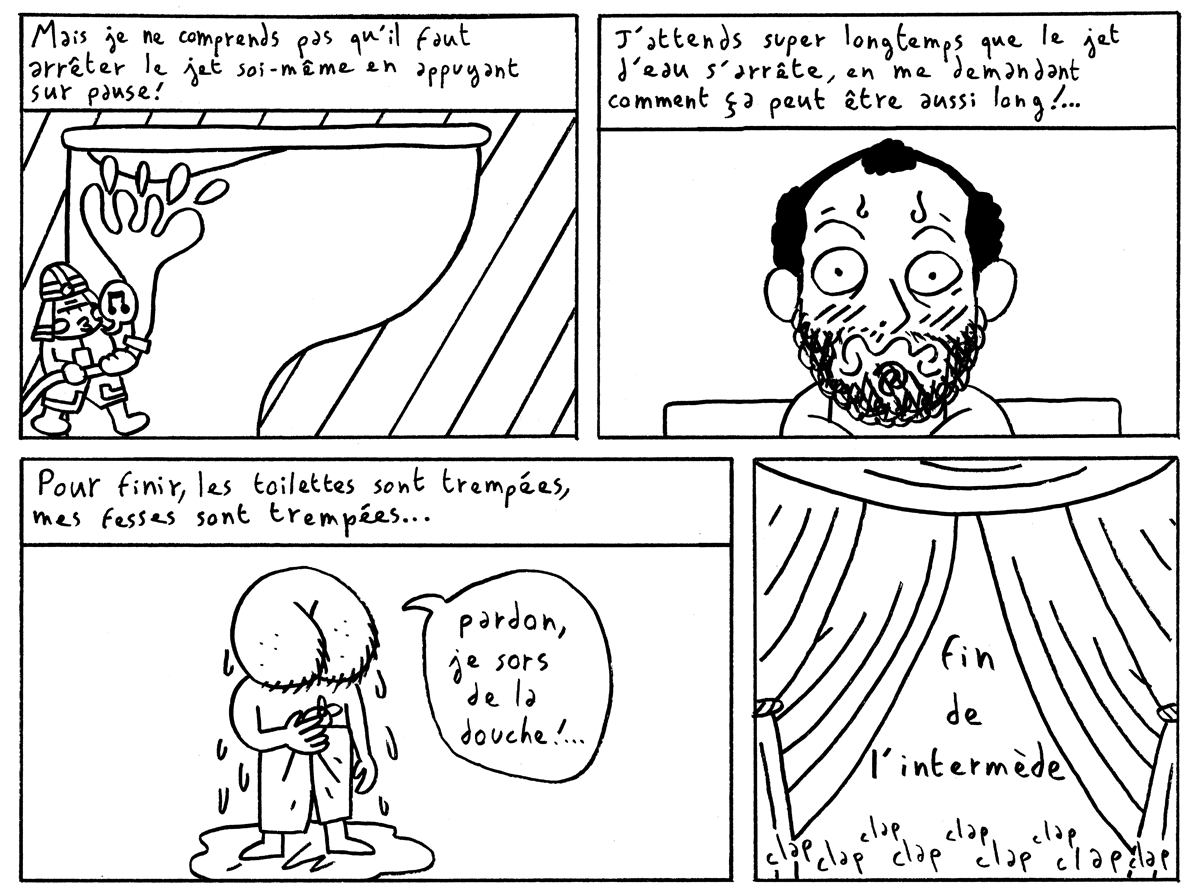 Mais je ne comprends pas qu'il faut
arrêter le jet soi-même en appuyant
sur pause!
J'attends super longtemps que le jet
d'eau s'arrête, en me demandant
comment ça peut être aussi long!...
Pour finir, les toilettes sont trempées,
mes fesses sont trempées...
pardon,
je sors
de la
douche!...
fin
de
l'intermède
clap clap clap clap clap clap clap clap clap